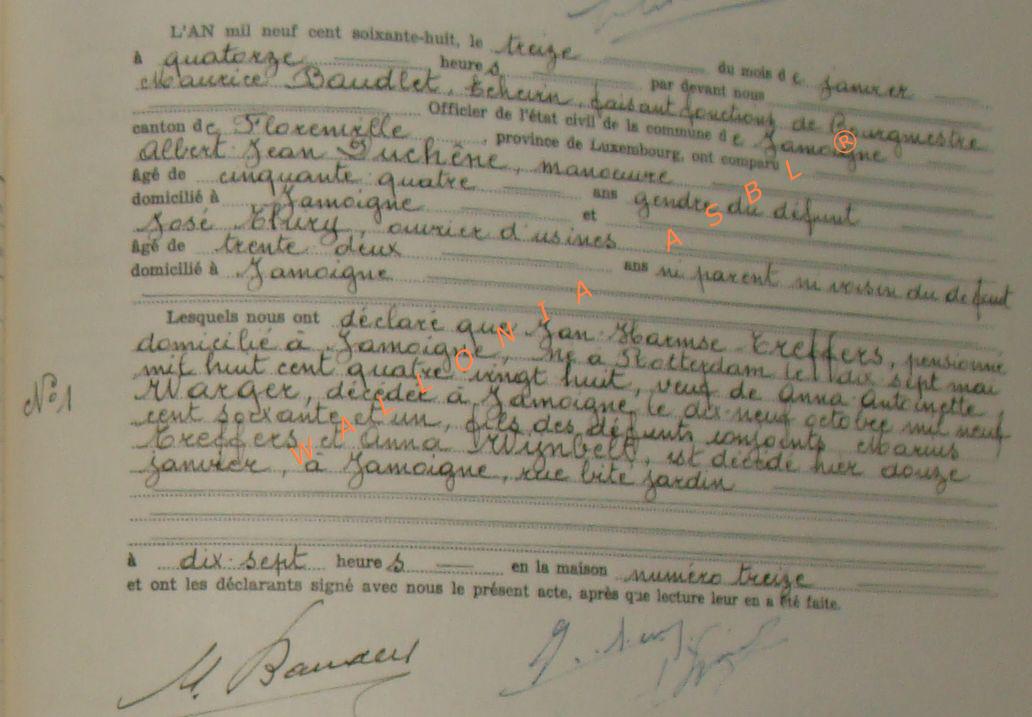 L'AN mil neuf cent soixante-huit, le treize du mois de janvier
à quatorze heures par devant nous
Maurice Baudlet, Echevin, faisant fonctions de Bourgmestre
Officier de l'état civil de la commune de Jamoigne
canton de Florenville, province de Luxembourg, ont comparu
Albert Jean Duchêne, manoeuvre
âgé de cinquante quatre ans gendre du défunt
domicilié à Jamoigne et
José Thiry, ouvrier d'usines
âgé de trente deux ans ni parent ni voisin du défunt
domicilié à Jamoigne
Lesquels nous ont déclaré que Jan Harmse Treffers, pensionné
domicilié à Jamoigne, né à Rotterdam le dix sept mai
mil huit cent quatre vingt huit, veuf de Anna Antoinette
Warger, décédée à Jamoigne le dix-neuf octobre mil neuf
cent soixante et un, fils des défunts conjoints Marius
Treffers et Anna est décédé hier douze
janvier, à Jamoigne, rue jardin
N° 1
à dix-sept heures en la maison numéro treize
et ont les déclarants signé avec nous le présent acte, après que lecture leur en a été faite.
M.
WALLONIA ASBL ®